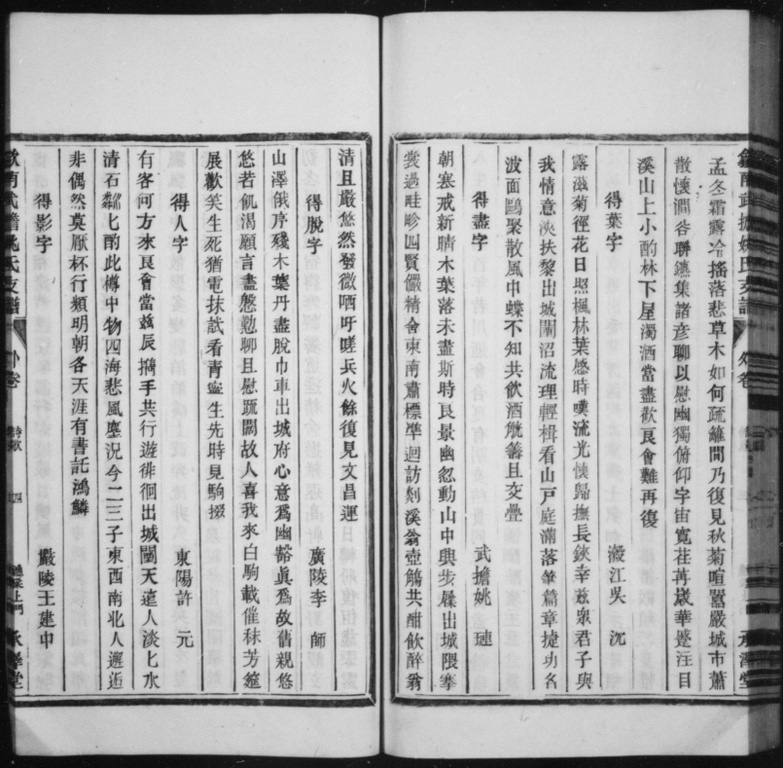 孟冬霜露冷搖落悲草木如何疏籬間乃復見秋菊喧囂嚴城市蕭
散懷澗谷聯鑣集諸彥聊以慰幽獨俯仰宇宙寬荏苒歲華蹙汪目
溪山上小酌林下屋濁酒當盡歡良會難再復
得葉字 瀫江吳 沉
露滋菊徑花日照楓林葉感時嘆流光懷歸撫長鋏幸茲衆君子與
我情意浹扶藜出城闉沿流理輕楫看山戸庭滿落筆篇章捷功名
波面鷗聚散風中蝶不知共飲酒觥籌且交疊
得盡字 武擔姚 璉
朝寒戒新晴木葉落未盡斯時良景幽忽動山中興步屧出城隈搴
裳過畦畛四賢儼精舍東南肅標準迴訪剡溪翁壺觴共酣飲醉翁
清且嚴悠然發微哂吁嗟兵火餘復見文昌運
得脫字 廣陵李 師
山澤俄序殘木葉丹盡脫巾車出城府心意爲幽豁眞爲故舊親悠
悠若飢渴願言盡慇懃聊且慰疏闊故人喜我來白駒載催秣芳筵
展歡笑生死猶電抹試看青寧生先時見駒掇
得人字 東陽許 元
有客何方來良會當茲辰攜手共行遊徘徊出城闉天遠人淡七水
清石粼七酌此樽中物四海悲風塵況今二三子東西南北人邂逅
非偶然莫厭杯行頻明朝各天涯有書託鴻鱗
得影字 嚴陵王建中
外卷
承澤堂